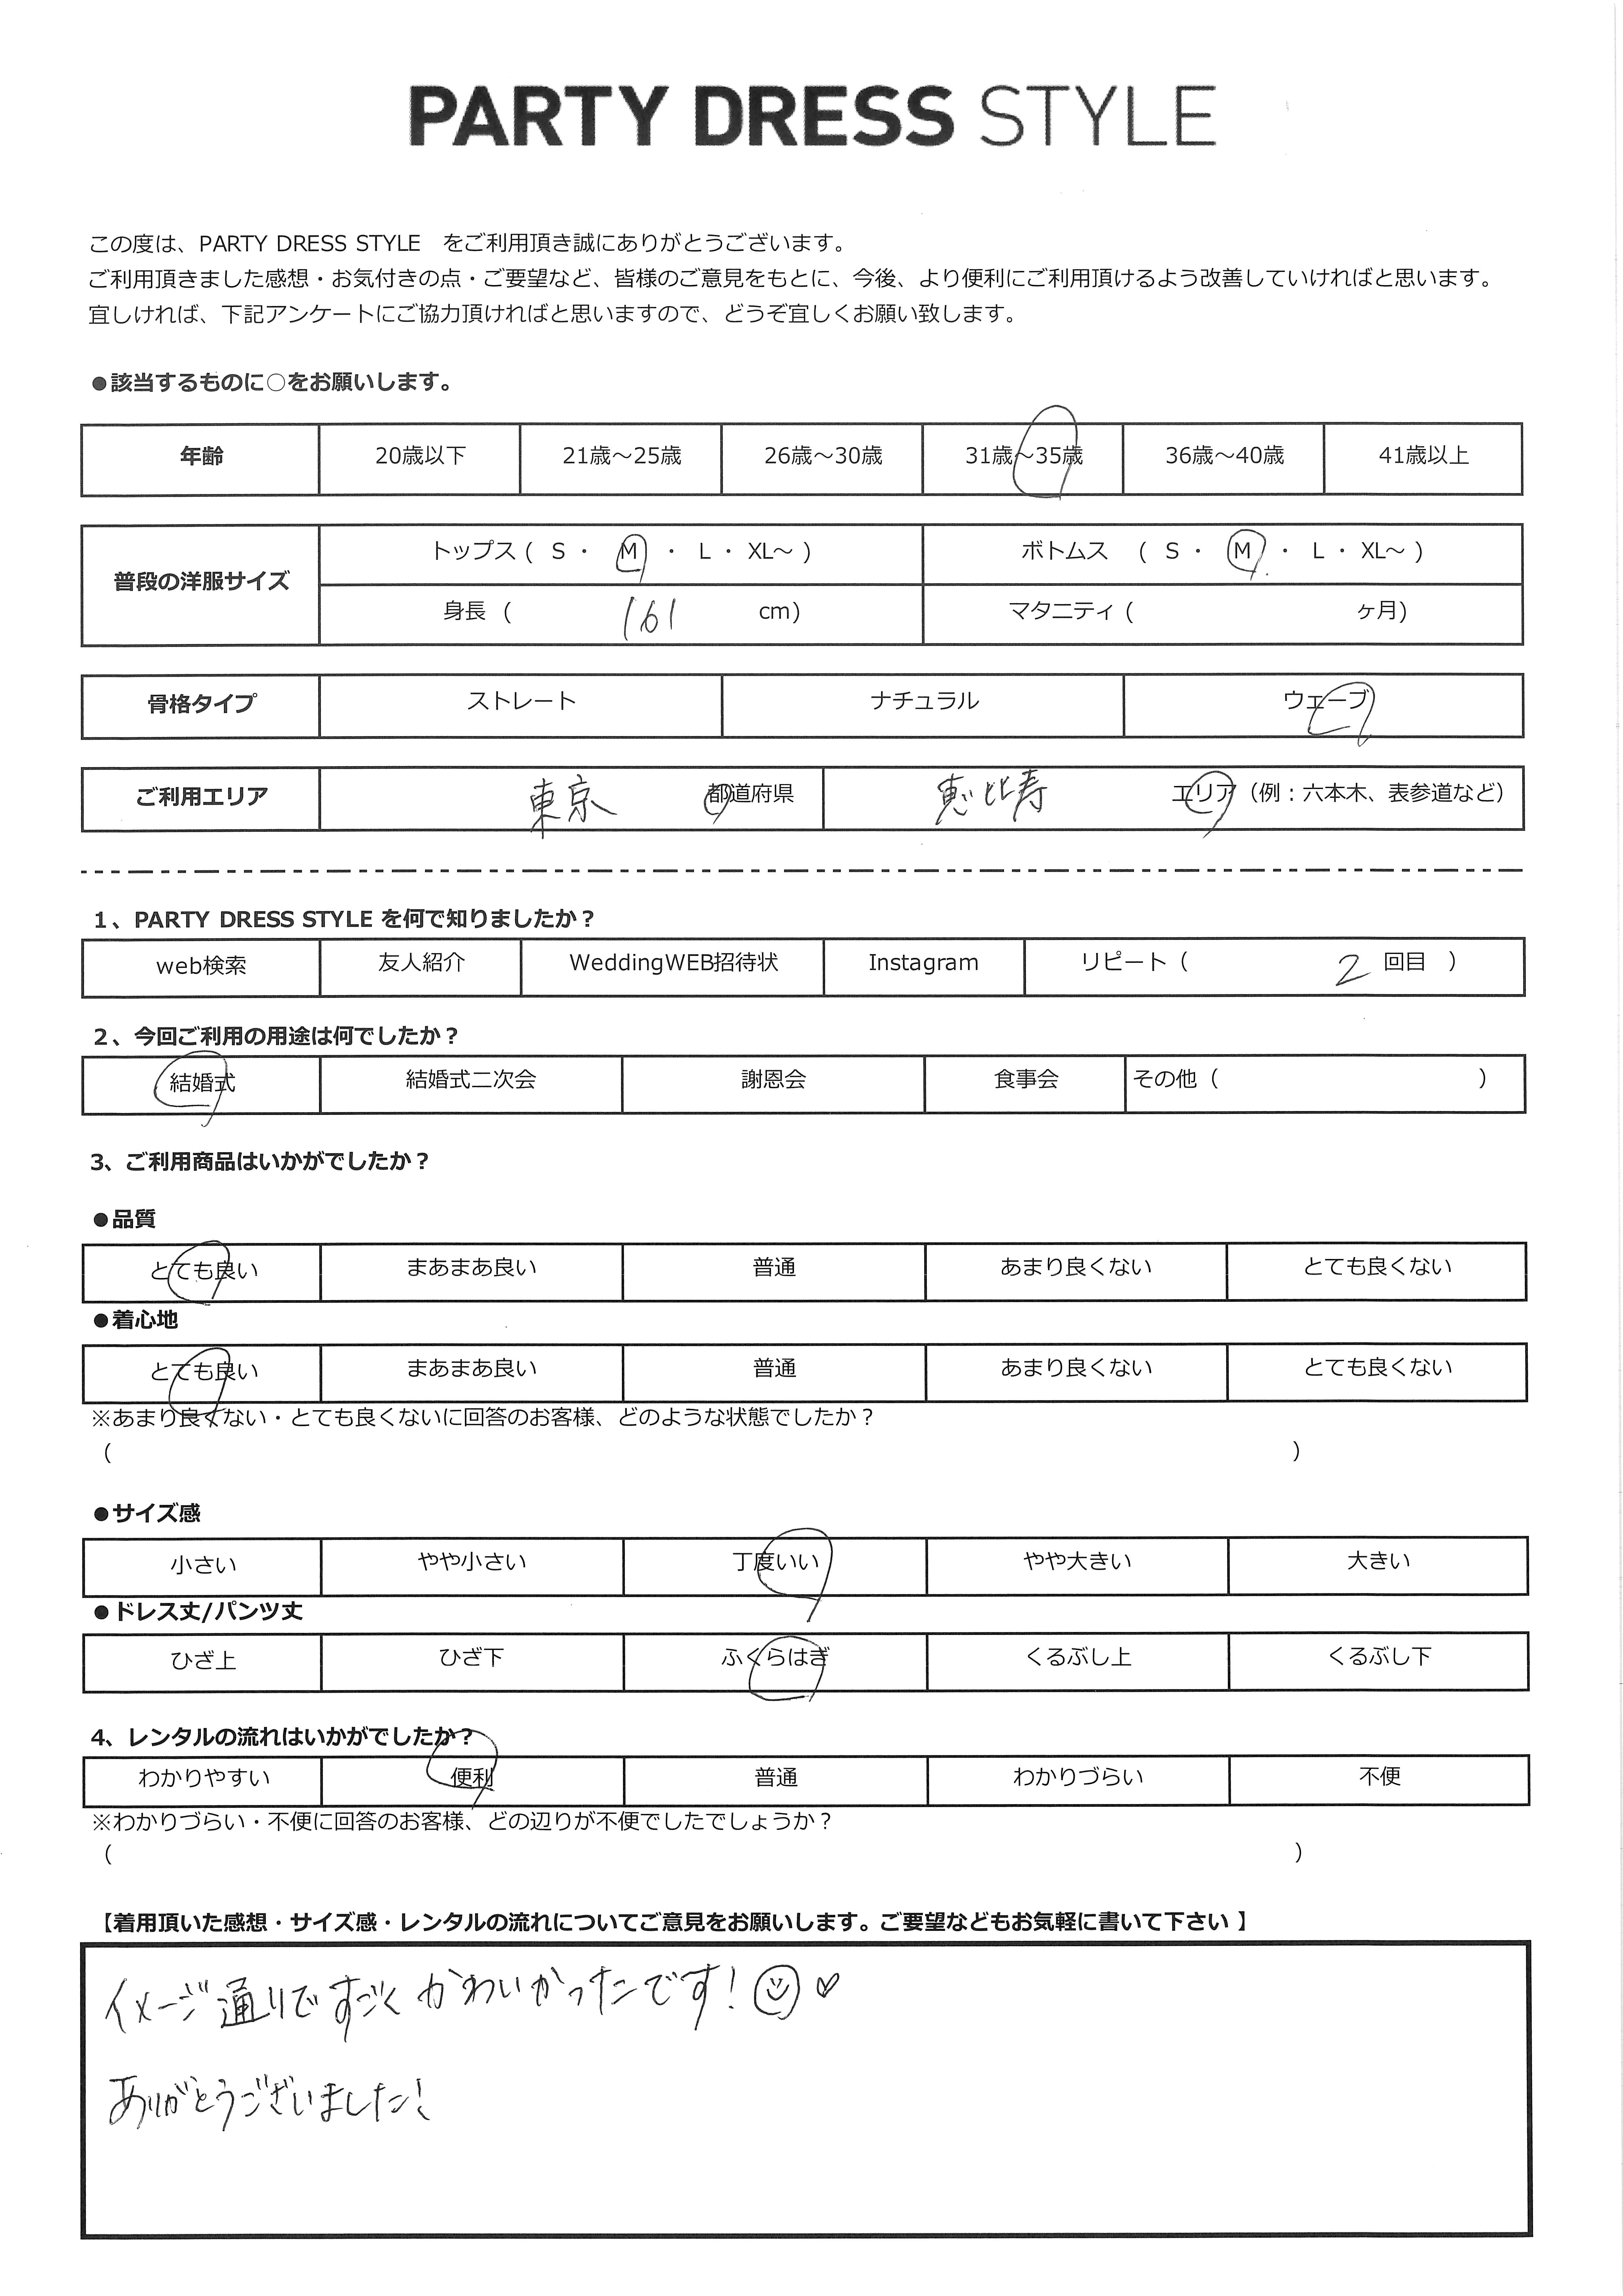 PARTY DRESS STYLE
この度は、PARTY DRESS STYLE をご利用頂き誠にありがとうございます。
ご利用頂きました感想・お気付きの点・ご要望など、皆様のご意見をもとに、今後、より便利にご利用頂けるよう改善していければと思います。
宜しければ、下記アンケートにご協力頂ければと思いますので、どうぞ宜しくお願い致します。
●該当するものに○をお願いします。
年齢 20歳以下 21歳～25歳 26歳～30歳 31歳～35歳 36歳～40歳 41歳以上
普段の洋服サイズ トップス ( S ・ M ・ L ・ XL～ ) ボトムス ( S ・ M ・ L ・ XL～ )
身長 ( 161 cm) マタニティ ( ヶ月)
骨格タイプ ストレート ナチュラル ウェーブ
ご利用エリア 東京 都道府県 恵比寿 エリア（例：六本木、表参道など）
1、PARTY DRESS STYLE を何で知りましたか？
web検索 友人紹介 WeddingWEB招待状 Instagram リピート（ 2 回目 ）
2、今回ご利用の用途は何でしたか？
結婚式 結婚式二次会 謝恩会 食事会 その他（ ）
3、ご利用商品はいかがでしたか？
●品質
とても良い まあまあ良い 普通 あまり良くない とても良くない
●着心地
とても良い まあまあ良い 普通 あまり良くない とても良くない
※あまり良くない・とても良くないに回答のお客様、どのような状態でしたか？
（ ）
●サイズ感
小さい やや小さい 丁度いい やや大きい 大きい
●ドレス丈/パンツ丈
ひざ上 ひざ下 ふくらはぎ くるぶし上 くるぶし下
4、レンタルの流れはいかがでしたか？
わかりやすい 便利 普通 わかりづらい 不便
※わかりづらい・不便に回答のお客様、どの辺りが不便でしたでしょうか？
（ ）
【着用頂いた感想・サイズ感・レンタルの流れについてご意見をお願いします。ご要望などもお気軽に書いて下さい 】
イメージ通りですごくかわいかったです！☺♡
ありがとうございました！